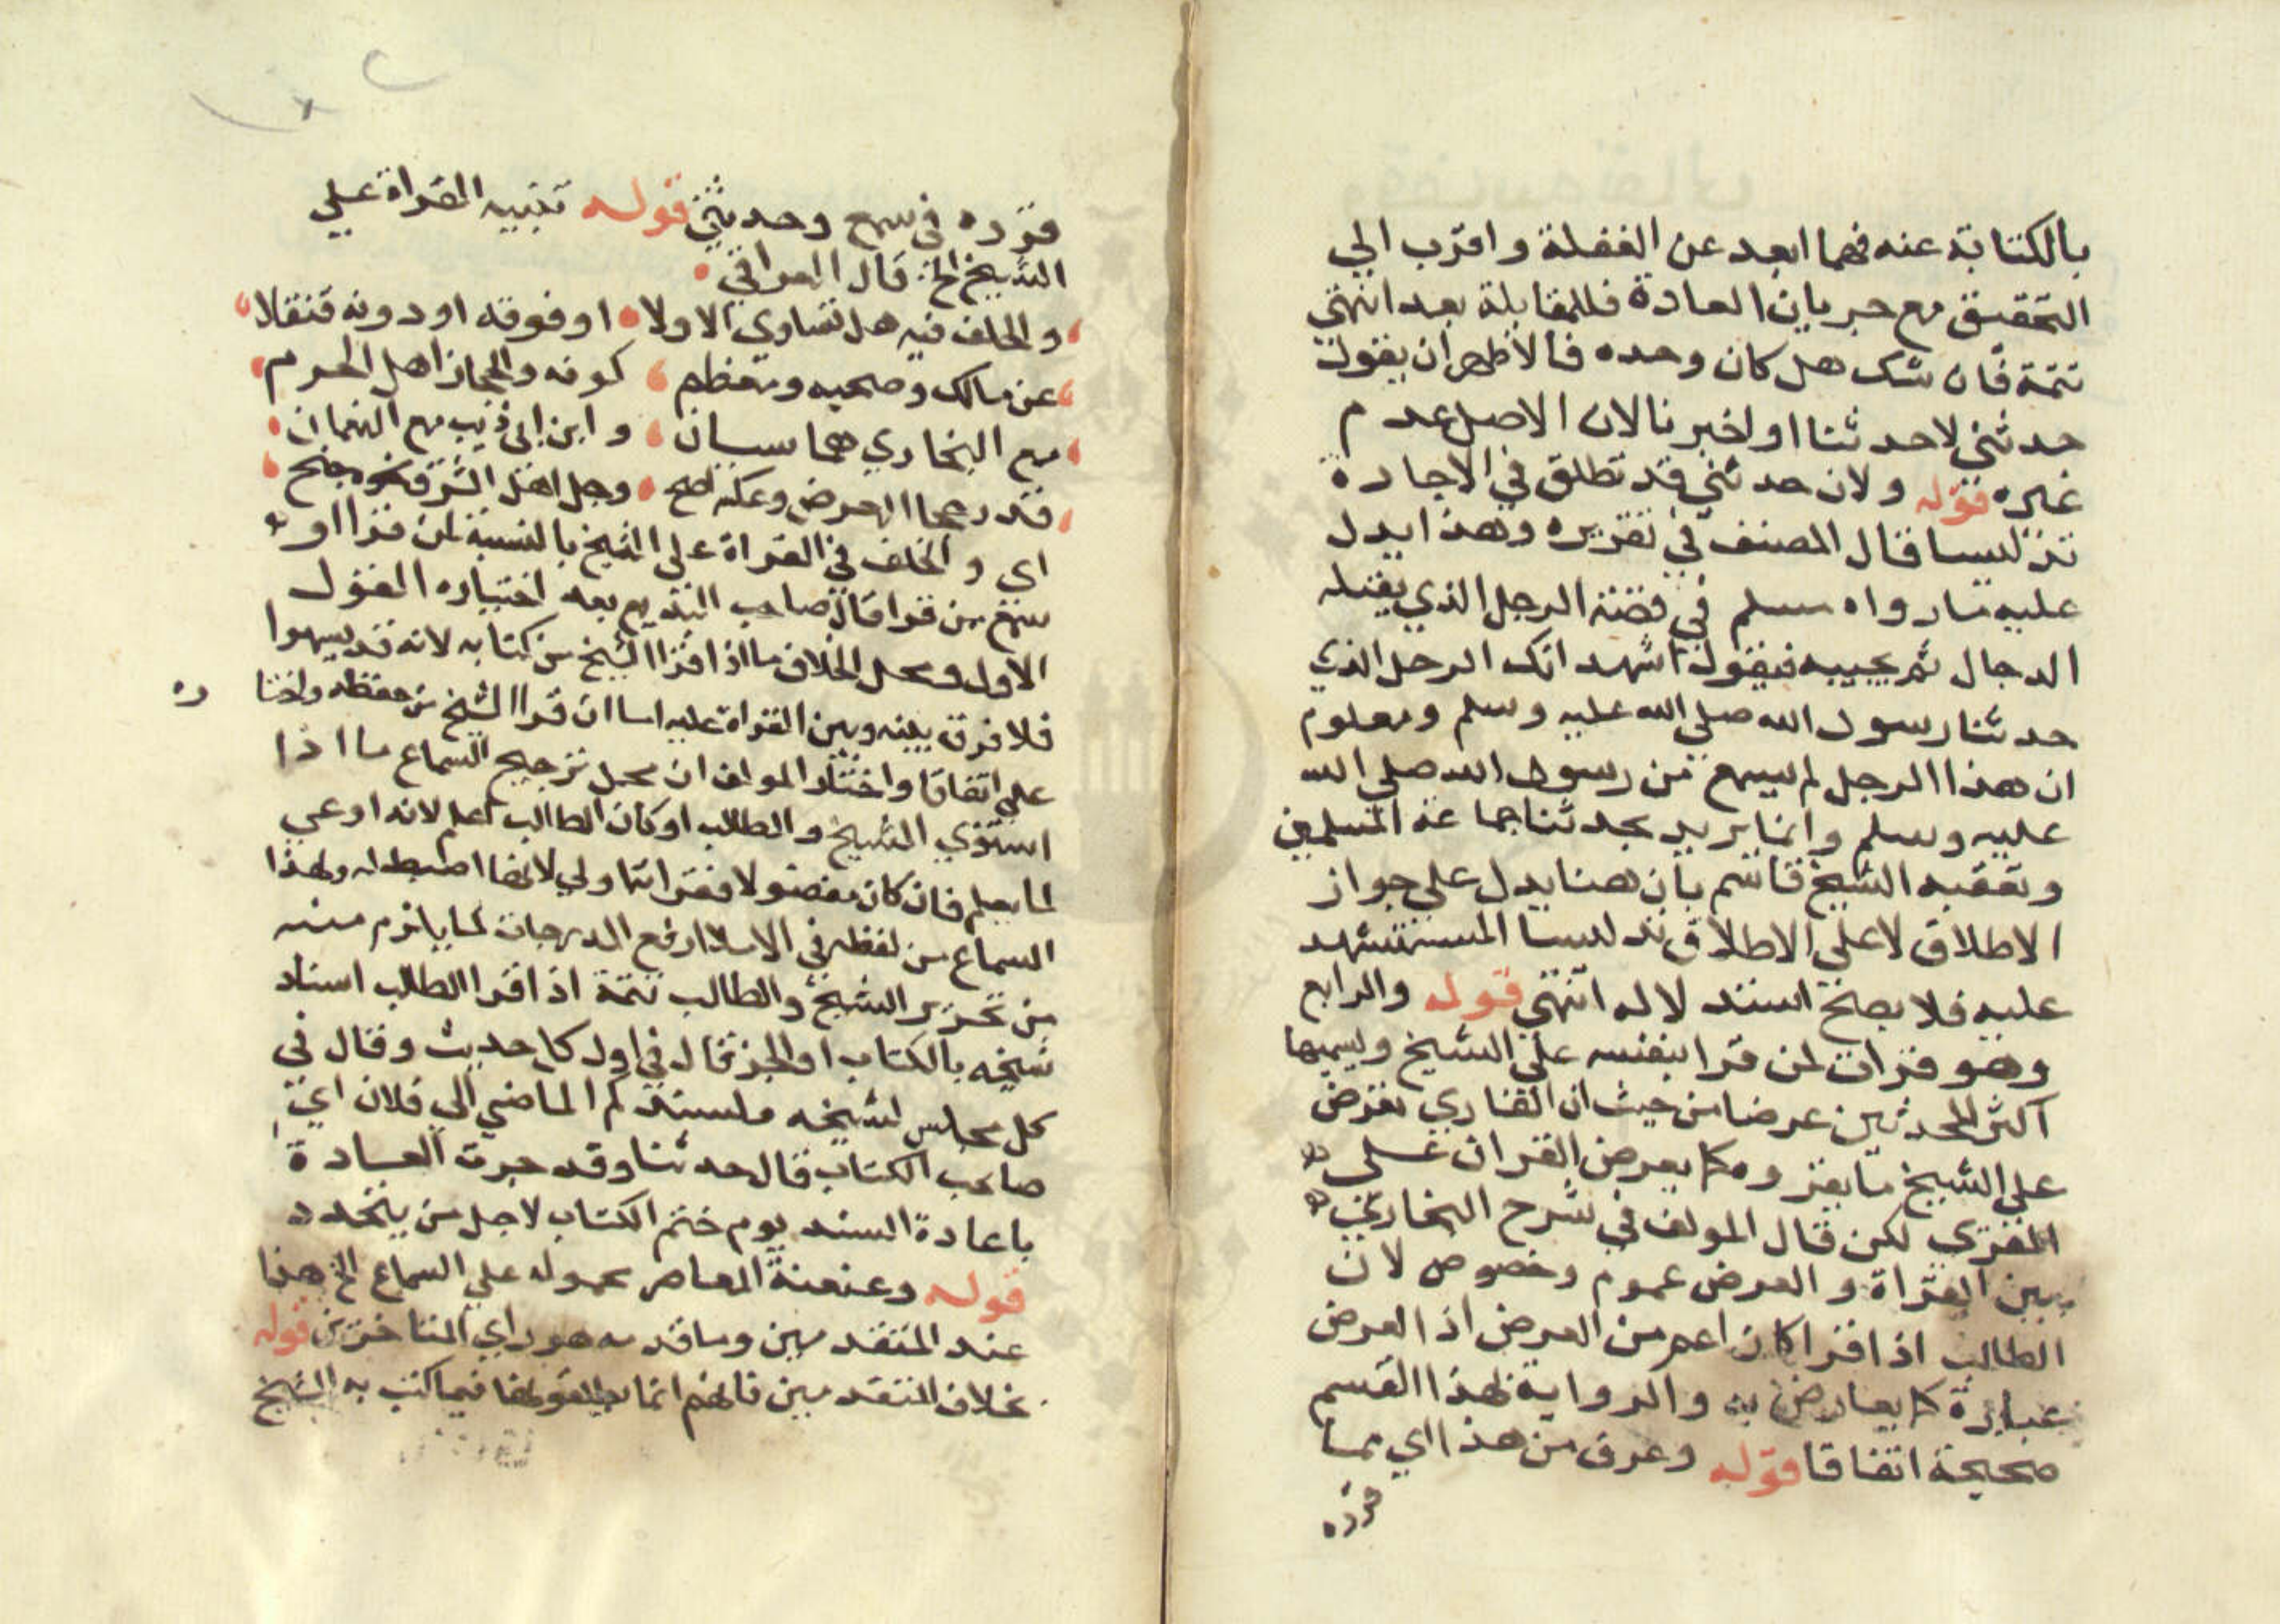 بالكتابة عنه فهما ابعد عن الغفلة واقرب الي
التحقيق مع جريان العادة فالمقابلة بعد انتهي
تتمة فان شك هل كان وحده فالاظهر ان يقول
حدثني لا حدثنا او اخبرنا لان الاصل عدم
غيره قوله ولان حدثني قد تطلق في الاجازة
تدليسا قال المصنف في تقريره وهذا يدل
عليه ما رواه مسلم في قصة الرجل الذي يقتله
الدجال ثم يحييه فيقول اشهد انك الرجل الذي
حدثنا رسول الله صلي الله عليه وسلم ومعلوم
ان هذا الرجل لم يسمع من رسول الله صلي الله
عليه وسلم وانما يريد بحدثنا جماعة المسلمين
وتعقبه الشيخ قاسم بان هنا يدل علي جواز
الاطلاق لا علي الاطلاق تدليسا المستشهد
عليه فلا يصح السند لاله انتهي قوله والرابع
وهو قرات لمن قرا بنفسه علي الشيخ ويسميها
اكثر المحدثين عرضا من حيث ان القاري يعرض
علي الشيخ ما يقروه كما يعرض القران علي
المقري لكن قال المولف في شرح البخاري
بين القراة والعرض عموم وخصوص لان
الطالب اذا قرا كان اعم من العرض اذ العرض
عبارة كما يعارض به والرواية لهذا القسم
صحيحة اتفاقا قوله وعرف من هذا اي مما
قرره
قرره في سمع وحدثني قوله تنبيه القراة علي
الشيخ الخ قال العراقي
والخلف فيه هل تساوي الاولا او فوقه او دونه فنقلا
عن مالك وصحبه ومعظم كوفه والحجاز اهل الحرم
مع البخاري هما سيان وابن ابي ذيب مع النعمان
قد رجحا العرض وعكسه اصح وجل اهل الشرق نحوه جنح
اي والخلف في القراة علي الشيخ بالنسبة لمن قرا او
سمع من قرا قال صاحب البديع بعد اختياره القول
الاول ومحل الخلاف ما اذا قرا الشيخ من كتابه لانه قد يسهوا
فلا فرق بينه وبين القراة عليه اما ان قرا الشيخ من حفظه واختا
ره
علي اتفاقا واختار المولف ان محل ترجيح السماع ما اذا
استوي الشيخ والطالب او كان الطالب اعلم لانه اوعي
لما يعلم فان كان مفضولا فقراته اولي لانها اضبط له ولهذا
السماع من لفظه في الاملا ارفع الدرجات لما يلزم منه
من تحرير الشيخ والطالب تتمة اذا قرا الطالب اسناد
شيخه بالكتاب او الجز قال في اول كل حديث وقال في
كل مجلس لشيخه ملسند لم الماضي الي فلان اي
صاحب الكتاب قال حدثنا وقد جرت العادة
باعادة السند يوم ختم الكتاب لاجل من يتجدد
قوله وعنعنة المعاصر محموله علي السماع الخ هذا
عند المتقدمين وما قدمه هو راي المتاخرين قوله
بخلاف المتقدمين فانهم انما يطلقونها فيما كتب به الشيخ